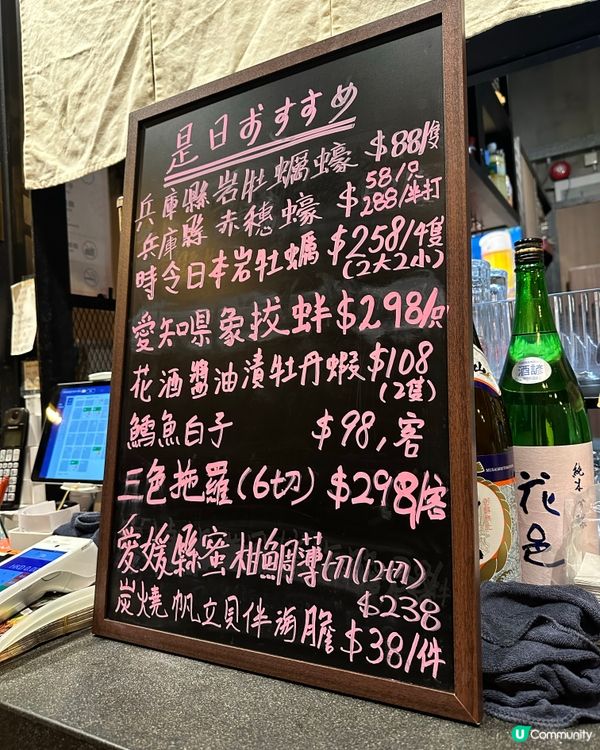 是日おすすめ
兵庫縣岩牡蠣蠔 $88/隻
兵庫縣赤穗蠔 $58/只
288/半打
時令日本岩牡蠣 $258/4隻
(2大2小)
愛知県象拔蚌 $298/只
花酒醬油漬牡丹蝦 $108
(2隻)
鱈魚白子 $98,客
三色拖羅(6切) $298/客
愛媛縣蜜柑鯛薄切(12切)
$238
炭燒帆立貝伴海膽 $38/件
酒諺
純米
花邑
U Community